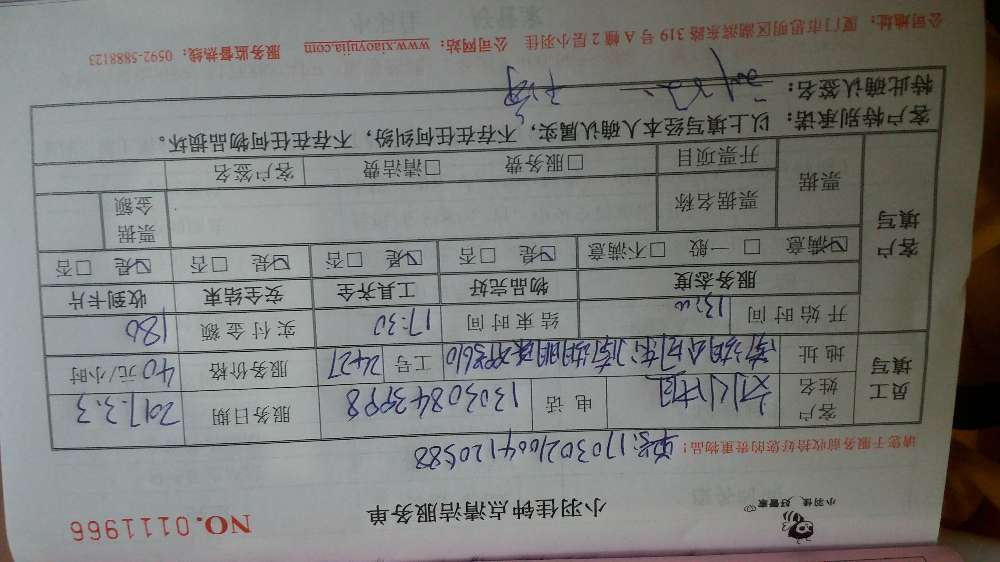 小羽佳 好管家
小羽佳钟点清洁服务单
NO.0111966
请您于服务前收拾好您的贵重物品!
单号:1703021004120588
员工填写 客户姓名 电话 13030843998 服务日期 2017.3.3
地址 工号 2427 服务价格 40元/小时
开始时间 13:00 结束时间 17:30 实付金额 180
客户填写 服务态度 物品完好 工具齐全 安全结束 收到卡片
☑满意 □一般 □不满意 ☑是 □否 ☑是 □否 ☑是 □否 ☑是 □否
票据 票据名称 票据金额
开票项目 □服务费 □清洁费 客户签名
客户特别承诺:以上填写经本人确认属实,不存在任何纠纷,不存在任何物品损坏。
特此确认签名:
公司地址:厦门市思明区湖滨东路319号A幢2层小羽佳 公司网站:www.xiaoyujia.com 服务监督热线:0592-5888123